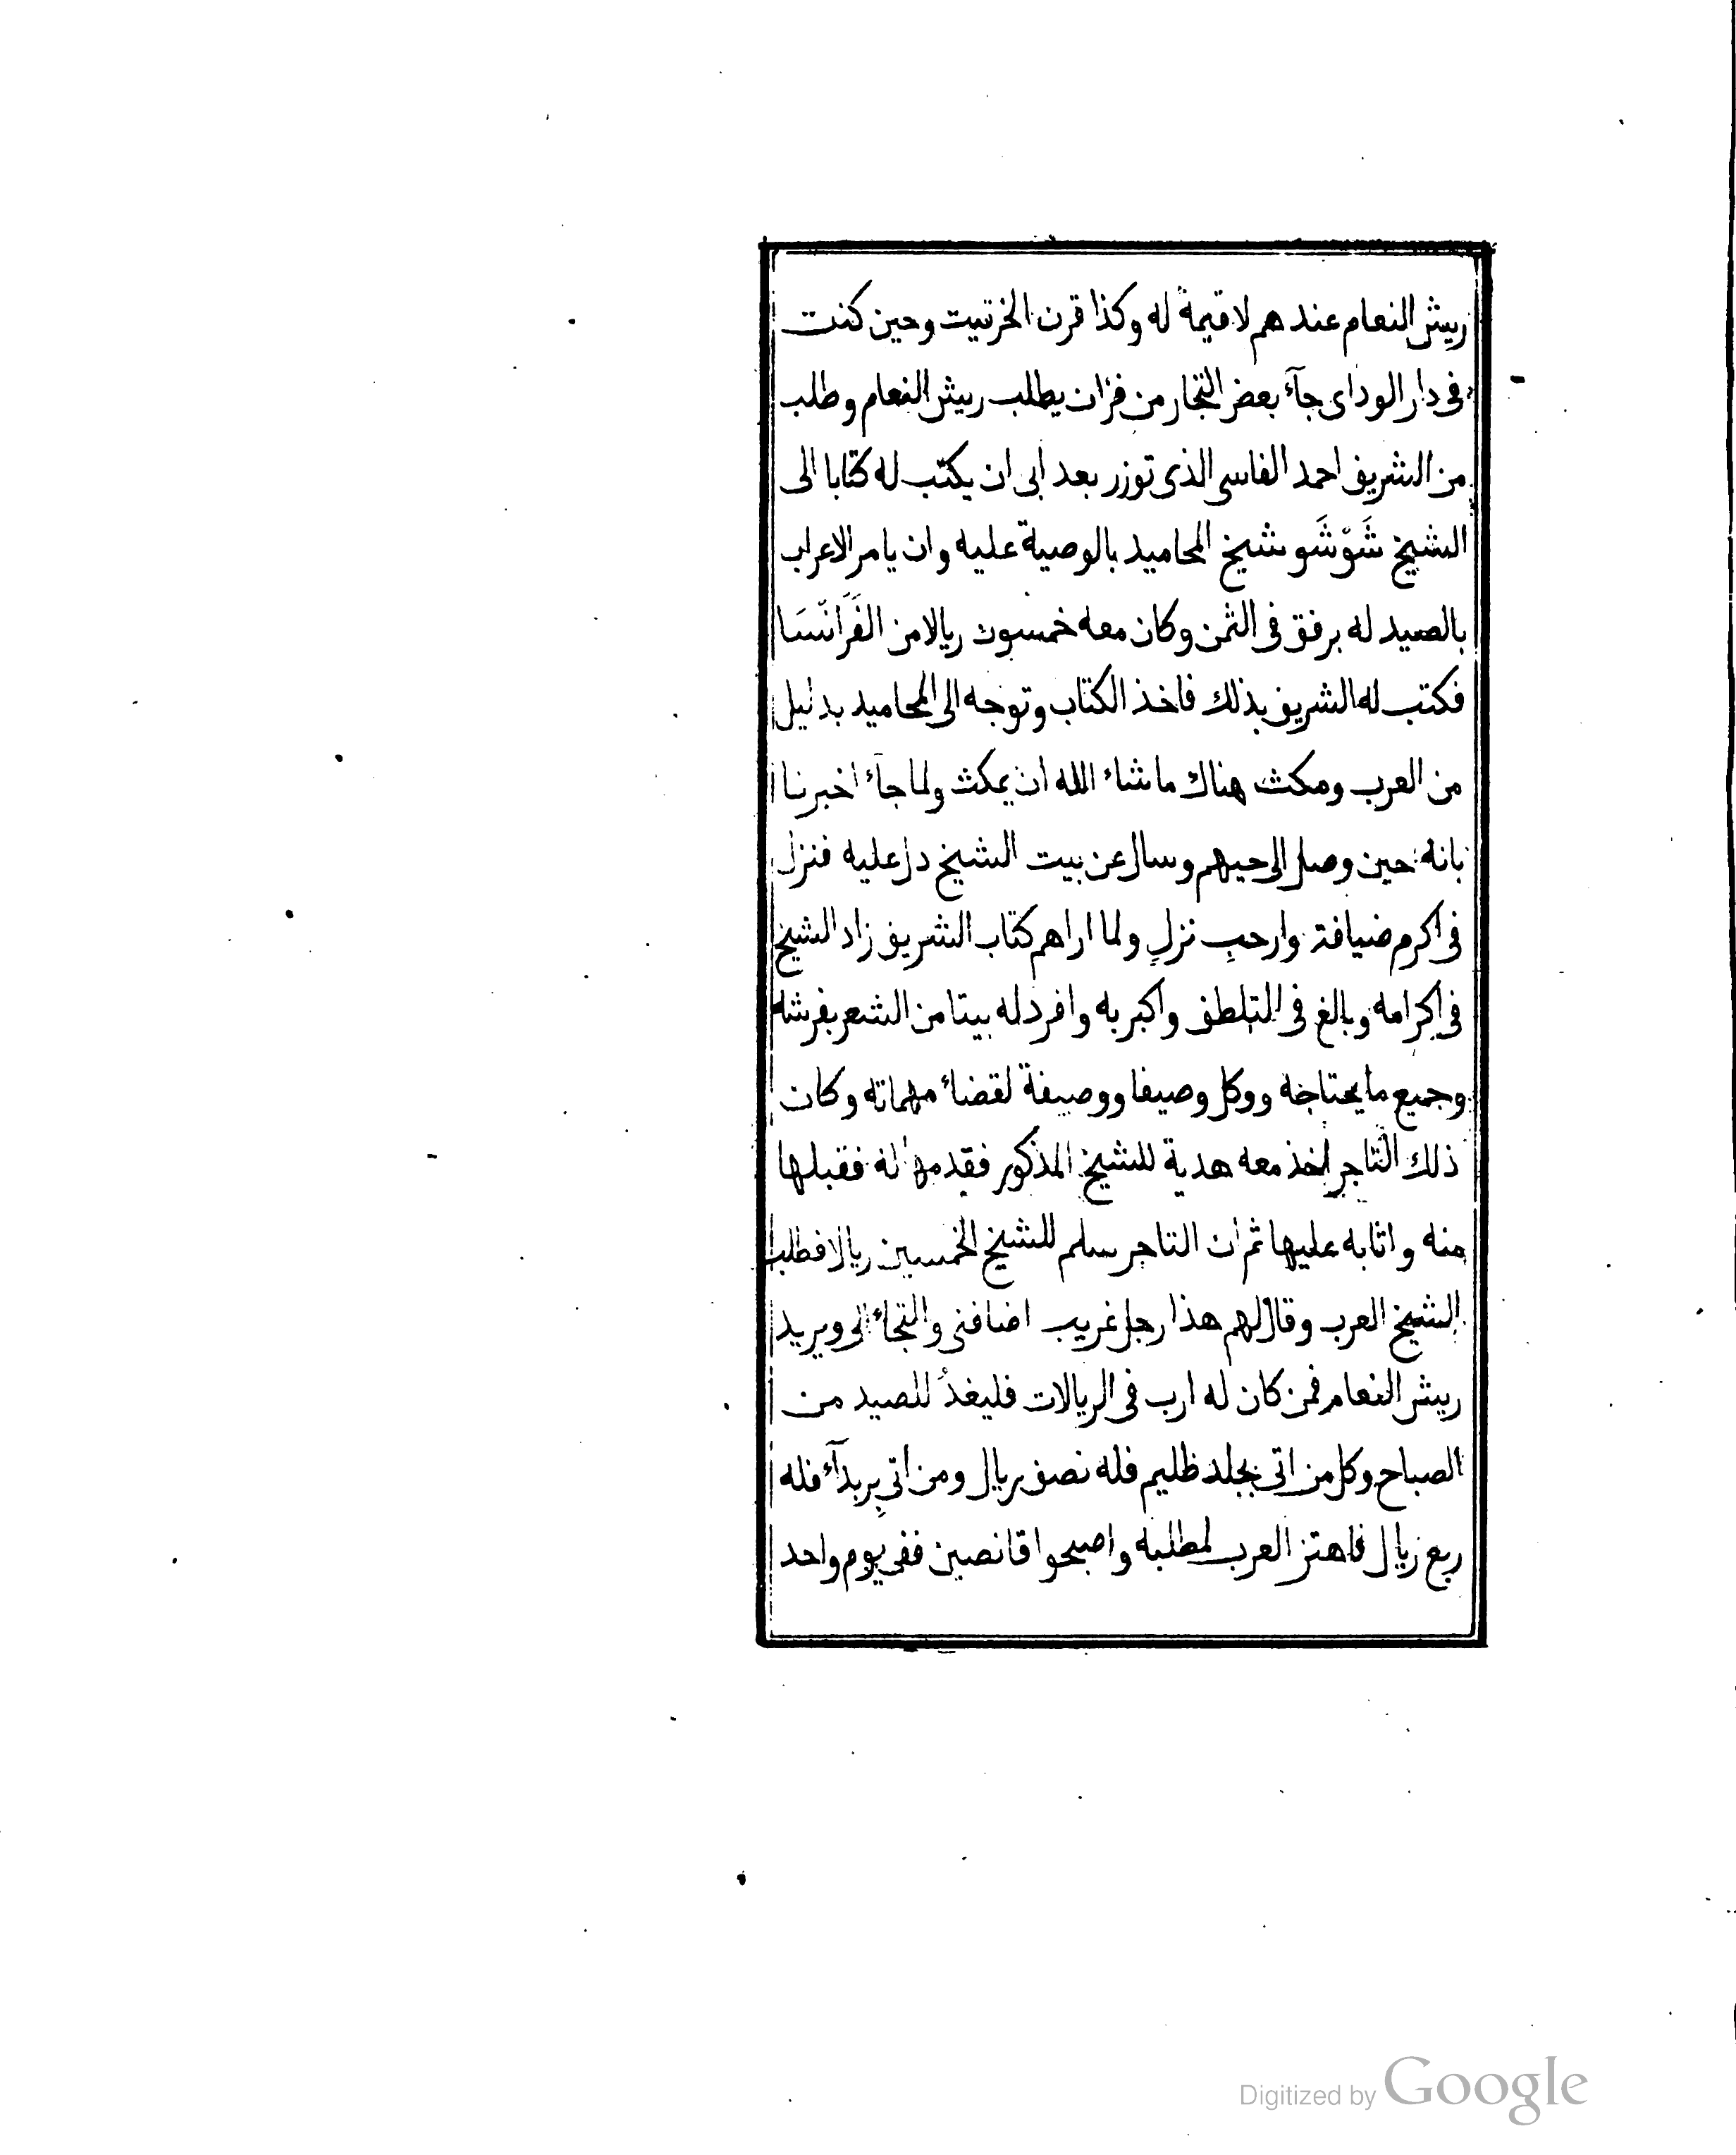 ريش النعام عندهم لا قيمة له وكذا قرن الخرتيت وحين كنت
فى دار الوداى جآء بعض التجار من فزان يطلب ريش النعام وطلب
من الشريف احمد الفاسى الذى توزر بعد ابى ان يكتب له كتابا الى
الشيخ شَوْشَو شيخ المحاميد بالوصية عليه وان يامر الاعراب
بالصيد له برفق فى الثمن وكان معه خمسون ريالا من الفَرَانْسَا
فكتب له الشريف بذلك فاخذ الكتاب وتوجه الى المحاميد بدليل
من العرب ومكث هناك ما شاء الله ان يمكث ولما جآء اخبرنا
بانه حين وصل الى حيهم وسال عن بيت الشيخ دل عليه فنزل
فى اكرم ضيافة وارحبِ نزلٍ ولما اراهم كتاب الشريف زاد الشيخ
فى اكرامه وبالغ فى التلطف واكبر به وافرد له بيتا من الشعر بفرشه
وجميع ما يحتاجه ووكل وصيفا ووصيفة لقضاء مهماته وكان
ذلك التاجر اخذ معه هدية للشيخ المذكور فقدمها له فقبلها
منه واثابه عليها ثم ان التاجر سلم للشيخ الخمسين ريالا فطلب
الشيخ العرب وقال لهم هذا رجل غريب اضافنى والتجاء الى ويريد
ريش النعام فمن كان له ارب فى الريالات فليغدُ للصيد من
الصباح وكل من اتى بجلد ظليم فله نصف ريال ومن اتى بِربدآء فله
ربع ريال فاهتز العرب لمطلبه واصبحوا قانصين ففى يوم واحد
Digitized by Google